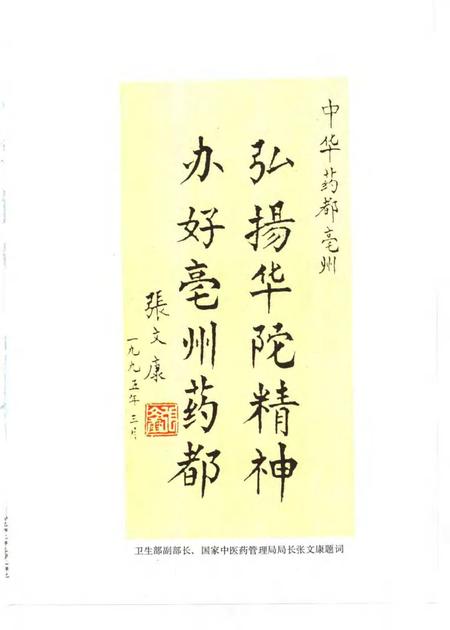 中华药都亳州
弘揚华陀精神
办好亳州药都
張文康
一九九五年三月
卫生部副部长、国家中医药管理局局长张文康题词